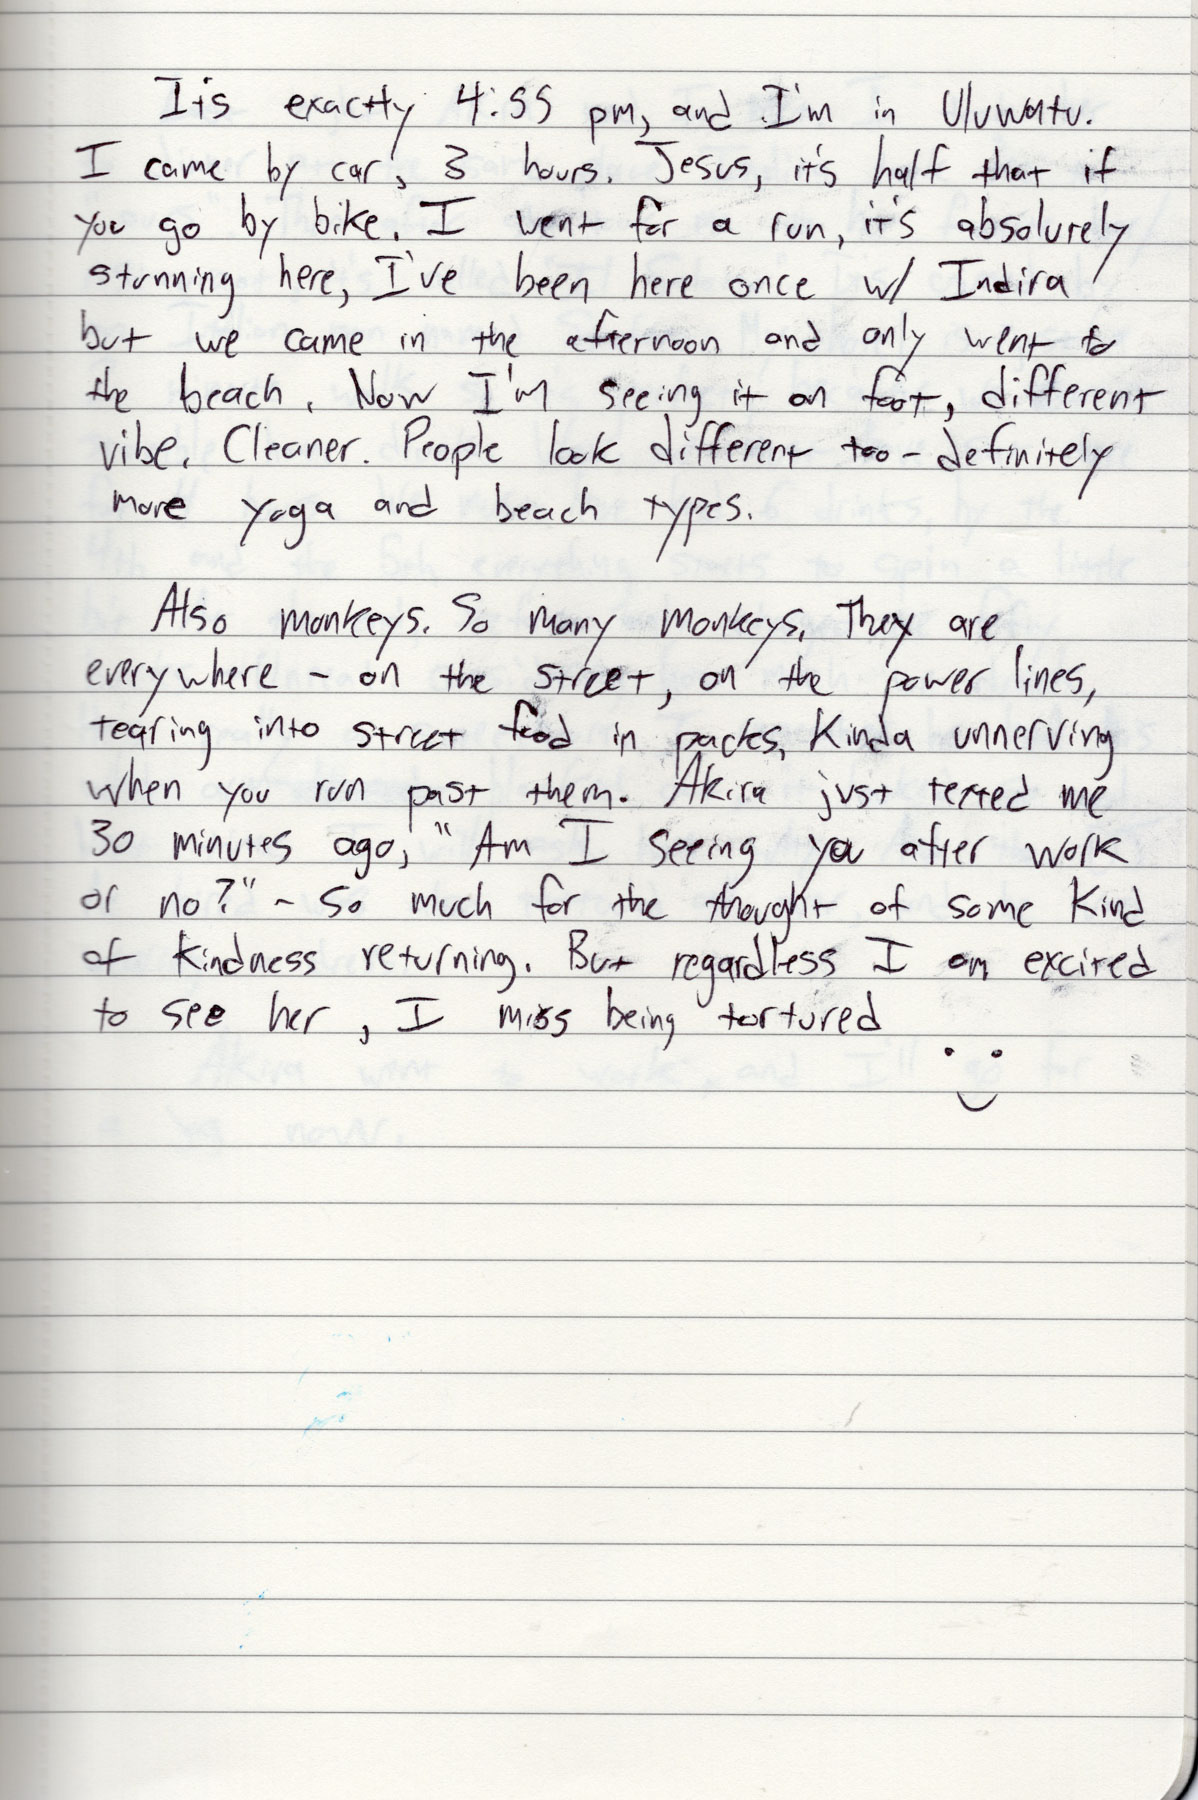 It's exactly 4:55 pm, and I'm in Uluwatu.
I came by car, 3 hours. Jesus, it's half that if
you go by bike. I went for a run, it's absolurely
stunning here, I've been here once w/ Indira
but we came in the afternoon and only went to
the beach. Now I'm seeing it on foot, different
vibe. Cleaner. People look different too - definitely
more yoga and beach types.
Also monkeys. So many monkeys. They are
everywhere - on the street, on the power lines,
tearing into street food in packs. Kinda unnerving
when you run past them. Akira just texted me
30 minutes ago, "Am I seeing you after work
or no?" - so much for the thought of some kind
of kindness returning. But regardless I am excited
to see her, I miss being tortured